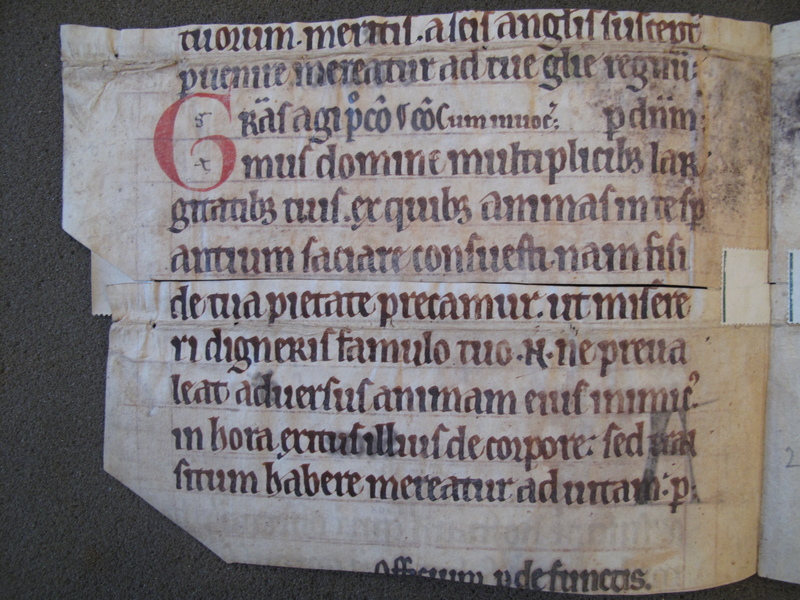 tuorum. meritis. a scis anglis suscept
puenire mereatur ad tue glie regnū:
Grās agi p̊cō s cō Cum inuoc̄: p dn̄m:
mus domine multiplicibꝫ lar
gitatibꝫ tuis. ex quibꝫ animas in te sp
antium saciare consuesti. nam fisi
de tua pietate precamur. ut misere
ri digneris famulo tuo. N. ne preua
leat aduersus animam eius inimic᾿
in hora exitus illius de corpore: sed tran
situm habere mereatur ad uitam. p.
Officium p defunctis.